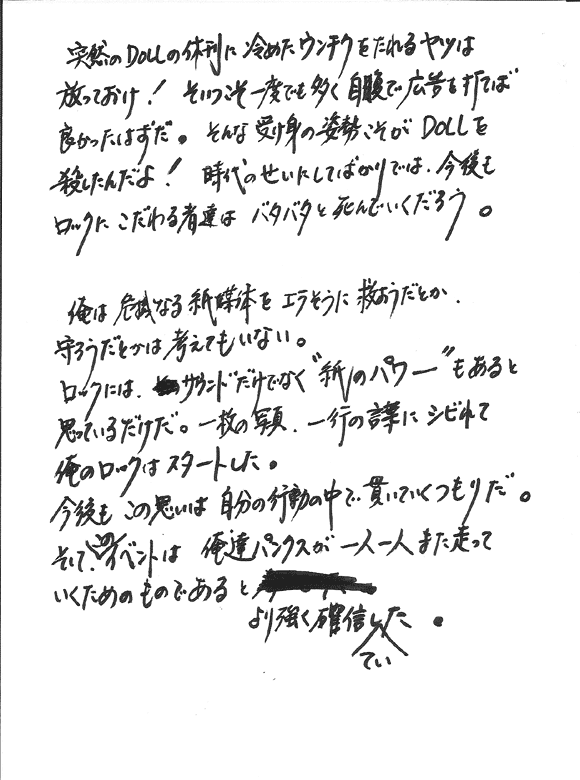 突然のDOLLの休刊に冷めたウンチクをたれるヤツは
放っておけ！そいつこそ一度でも多く自腹で広告を打てば
良かったはずだ。そんな受け身の姿勢こそがDOLLを
殺したんだよ！時代のせいにしてばかりでは、今後も
ロックにこだわる者達はバタバタと死んでいくだろう。
俺は危機なる紙媒体をエラそうに救おうだとか、
守ろうだとかは考えてもいない。
ロックには、サウンドだけでなく“紙のパワー”もあると
思っているだけだ。一枚の写真、一行の言葉にシビれて
俺のロックはスタートした。
今後もこの思いは自分の行動の中で貫いていくつもりだ。
そして、このイベントは俺達パンクスが一人一人また走って
いくためのものであると
より強く確信した。
てい